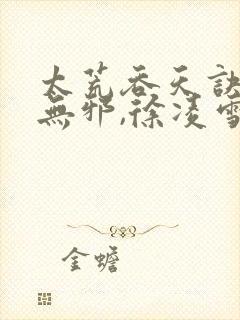 太荒吞天訣
無邪,徐凌雪
金蟾